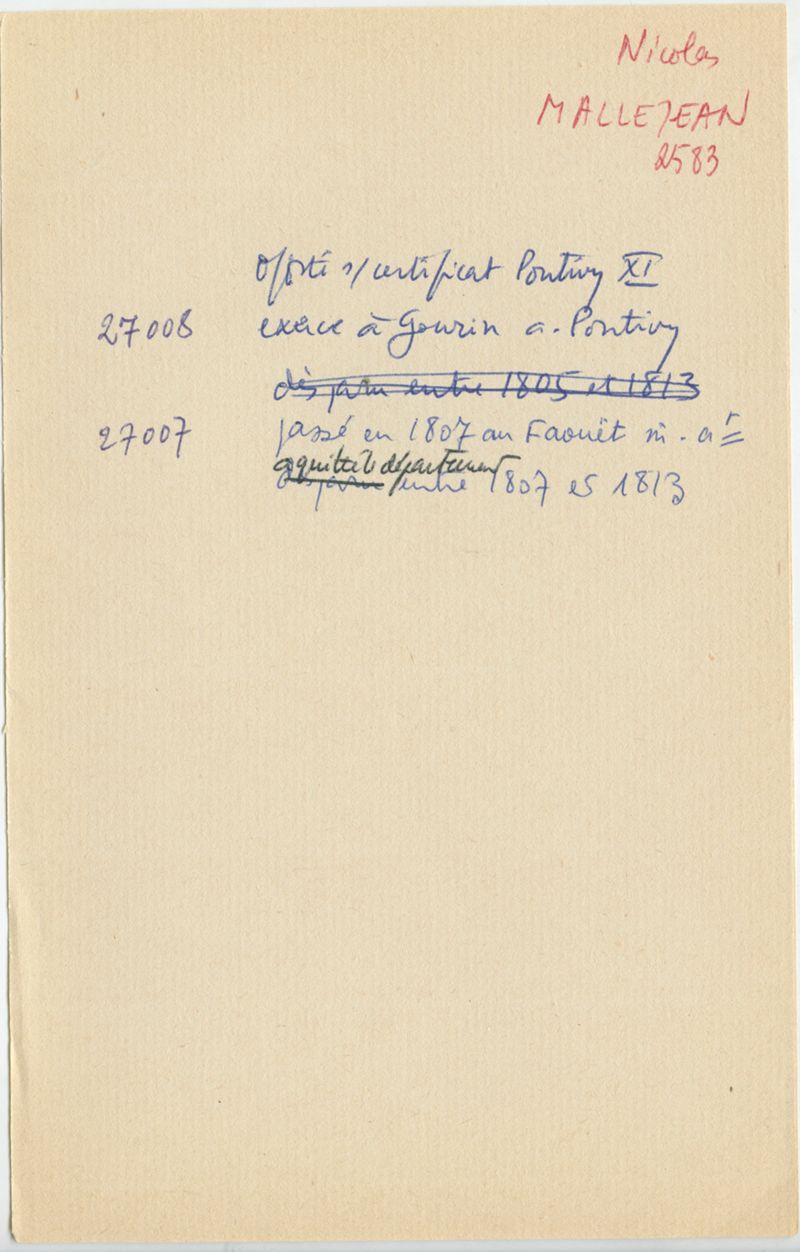 Nicolas
MALLEJEAN
2583
s/ certificat Pontivy XI
27008 exerce à Gourin a. Pontivy
disparu entre 1805 et 1813
27007 passé en 1807 au Faouët m. ar
a quitté le département
disparu entre 1807 et 1813